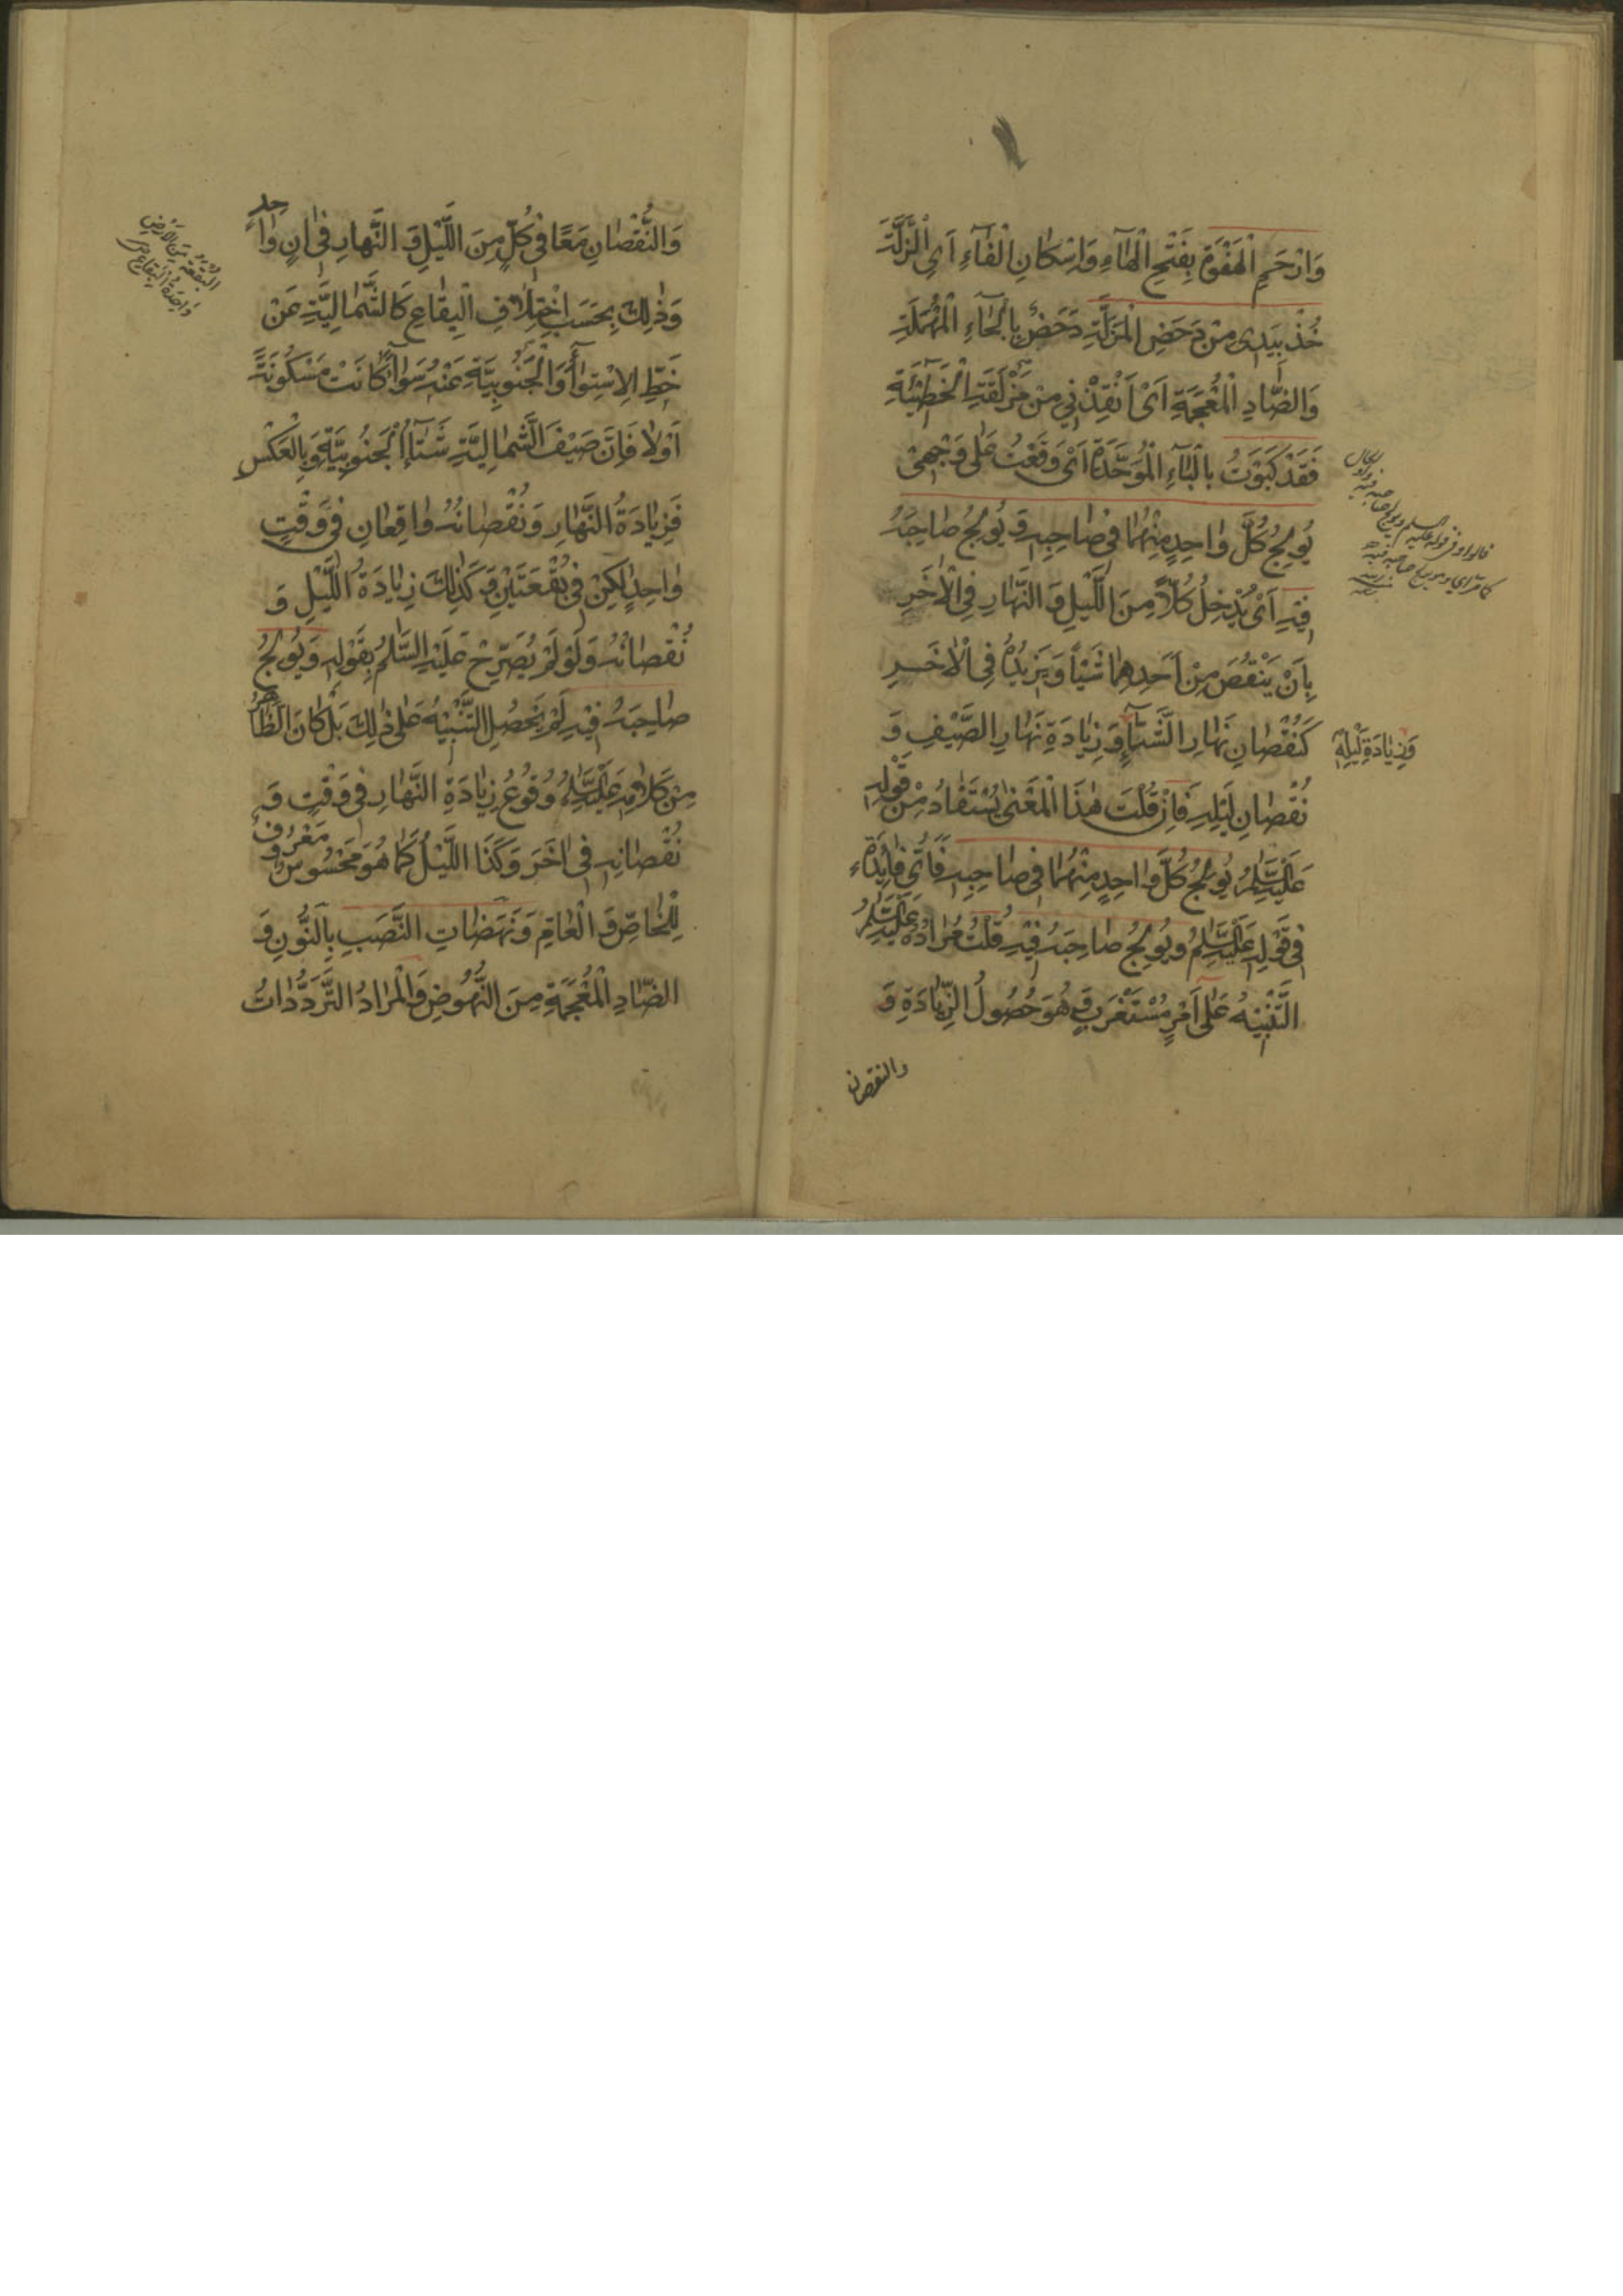 وَارْحَمِ الْهَفْوَةَ بِفَتْحِ الْهَآءِ وَاِسْكانِ الْفآءِ اَىِ الزَّلَّةَ
خُذْ بِيَدى مِنْ دَحَضِ الْمَزَلَّةِ دَحَضُ بِالْحآءِ الْمُهْمَلَةِ
وَالضّادِ الْمُعْجَمَةِ اَىْ اَنْقِذْنى مِنْ مَزْلَقَةِ الْخَطيٓئَةِ
فَقَدْ كَبَوْتُ بِالْبآءِ الْمُوَحَّدَةِ اَىْ وَقَعْتُ عَلى وَجْهى
يُولِجُ كُلَّ واحِدٍ مِنْهُما فى صاحِبِهِ وَ يُولِجُ صاحِبَهُ
فيهِ اَىْ يُدْخِلُ كُلّاً مِنَ اللَّيْلِ وَ النَّهارِ فِى الْاخَرِ
بِاَنْ يَنْقُصَ مِنْ اَحَدِهِما شَيْئاً وَ يَزيدَهُ فِى الْاخَرِ
كَنُقْصانِ نَهارِ الشِّتآءِ وَ زِيادَةِ نَهارِ الصَّيْفِ وَ
وَزِيادَةِ لَيْلِهِ
نُقْصانِ لَيْلِهِ فَاِنْ قُلْتَ هذَا الْمَعْنى يُسْتَفادُ مِنْ قَوْلِهِ
عَلَيْهِ السَّلامُ يُولِجُ كُلَّ واحِدٍ مِنْهُما فى صاحِبِهِ فَاَىُّ فايِدَةٍ
فى قَوْلِهِ عَلَيْهِ السَّلامُ وَيُولِجُ صاحِبَهُ فيهِ قُلْتُ مُرادُهُ عَلَيْهِ السَّلامُ
التَّنْبيهُ عَلى اَمْرٍ مُسْتَغْرَبٍ وَ هُوَ حُصُولُ الزِّيادَةِ وَ
والنقصان
وَالنُّقْصانِ مَعًا فى كُلٍّ مِنَ اللَّيْلِ وَ النَّهارِ فى انٍ واحِدٍ
وَذلِكَ بِحَسَبِ اخْتِلافِ الْبِقاعِ كَالشَّمالِيَّةِ عَنْ
خَطِّ الْاِسْتِوآءِ وَالْجَنُوبِيَّةِ عَنْهُ سَوآءٌ كانَتْ مَسْكُونَةً
اَوْلا فَاِنَّ صَيْفَ الشَّمالِيَّةِ شِتآءُ الْجَنُوبِيَّةِ وَبِالْعَكْسِ
فَزِيادَةُ النَّهارِ وَ نُقْصانُهُ واقِعانِ فى وَقْتٍ
واحِدٍ لكِنْ فى بُقْعَتَيْنِ وَ كَذلِكَ زِيادَةُ اللَّيْلِ وَ
نُقْصانُهُ وَلَوْ لَمْ يُصَرِّحْ عَلَيْهِ السَّلامُ بِقَوْلِهِ وَ يُولِجُ
صاحِبَهُ فيهِ لَمْ يَحْصُلِ التَّنْبيهُ عَلى ذلِكَ بَلْ كانَ الظّاهِرُ
مِنْ كَلامِهِ عَلَيْهِ السَّلامُ وُقُوعُ زِيادَةِ النَّهارِ فى وَقْتٍ وَ
نُقْصانِهِ فى اخَرَ وَ كَذَا اللَّيْلُ كَما هُوَ مَحْسُوسٌ مَعْرُوفٌ
لِلْخاصِّ وَ الْعامِّ وَ نَهَضاتِ النَّصَبِ بِالنُّونِ وَ
الضّادِ الْمُعْجَمَةِ مِنَ النُّهُوضِ وَالْمُرادُ التَّرَدُّداتُ
البُقْعَةُ مِنَ الْاَرْضِ
واحِدَةُ البِقاعِ